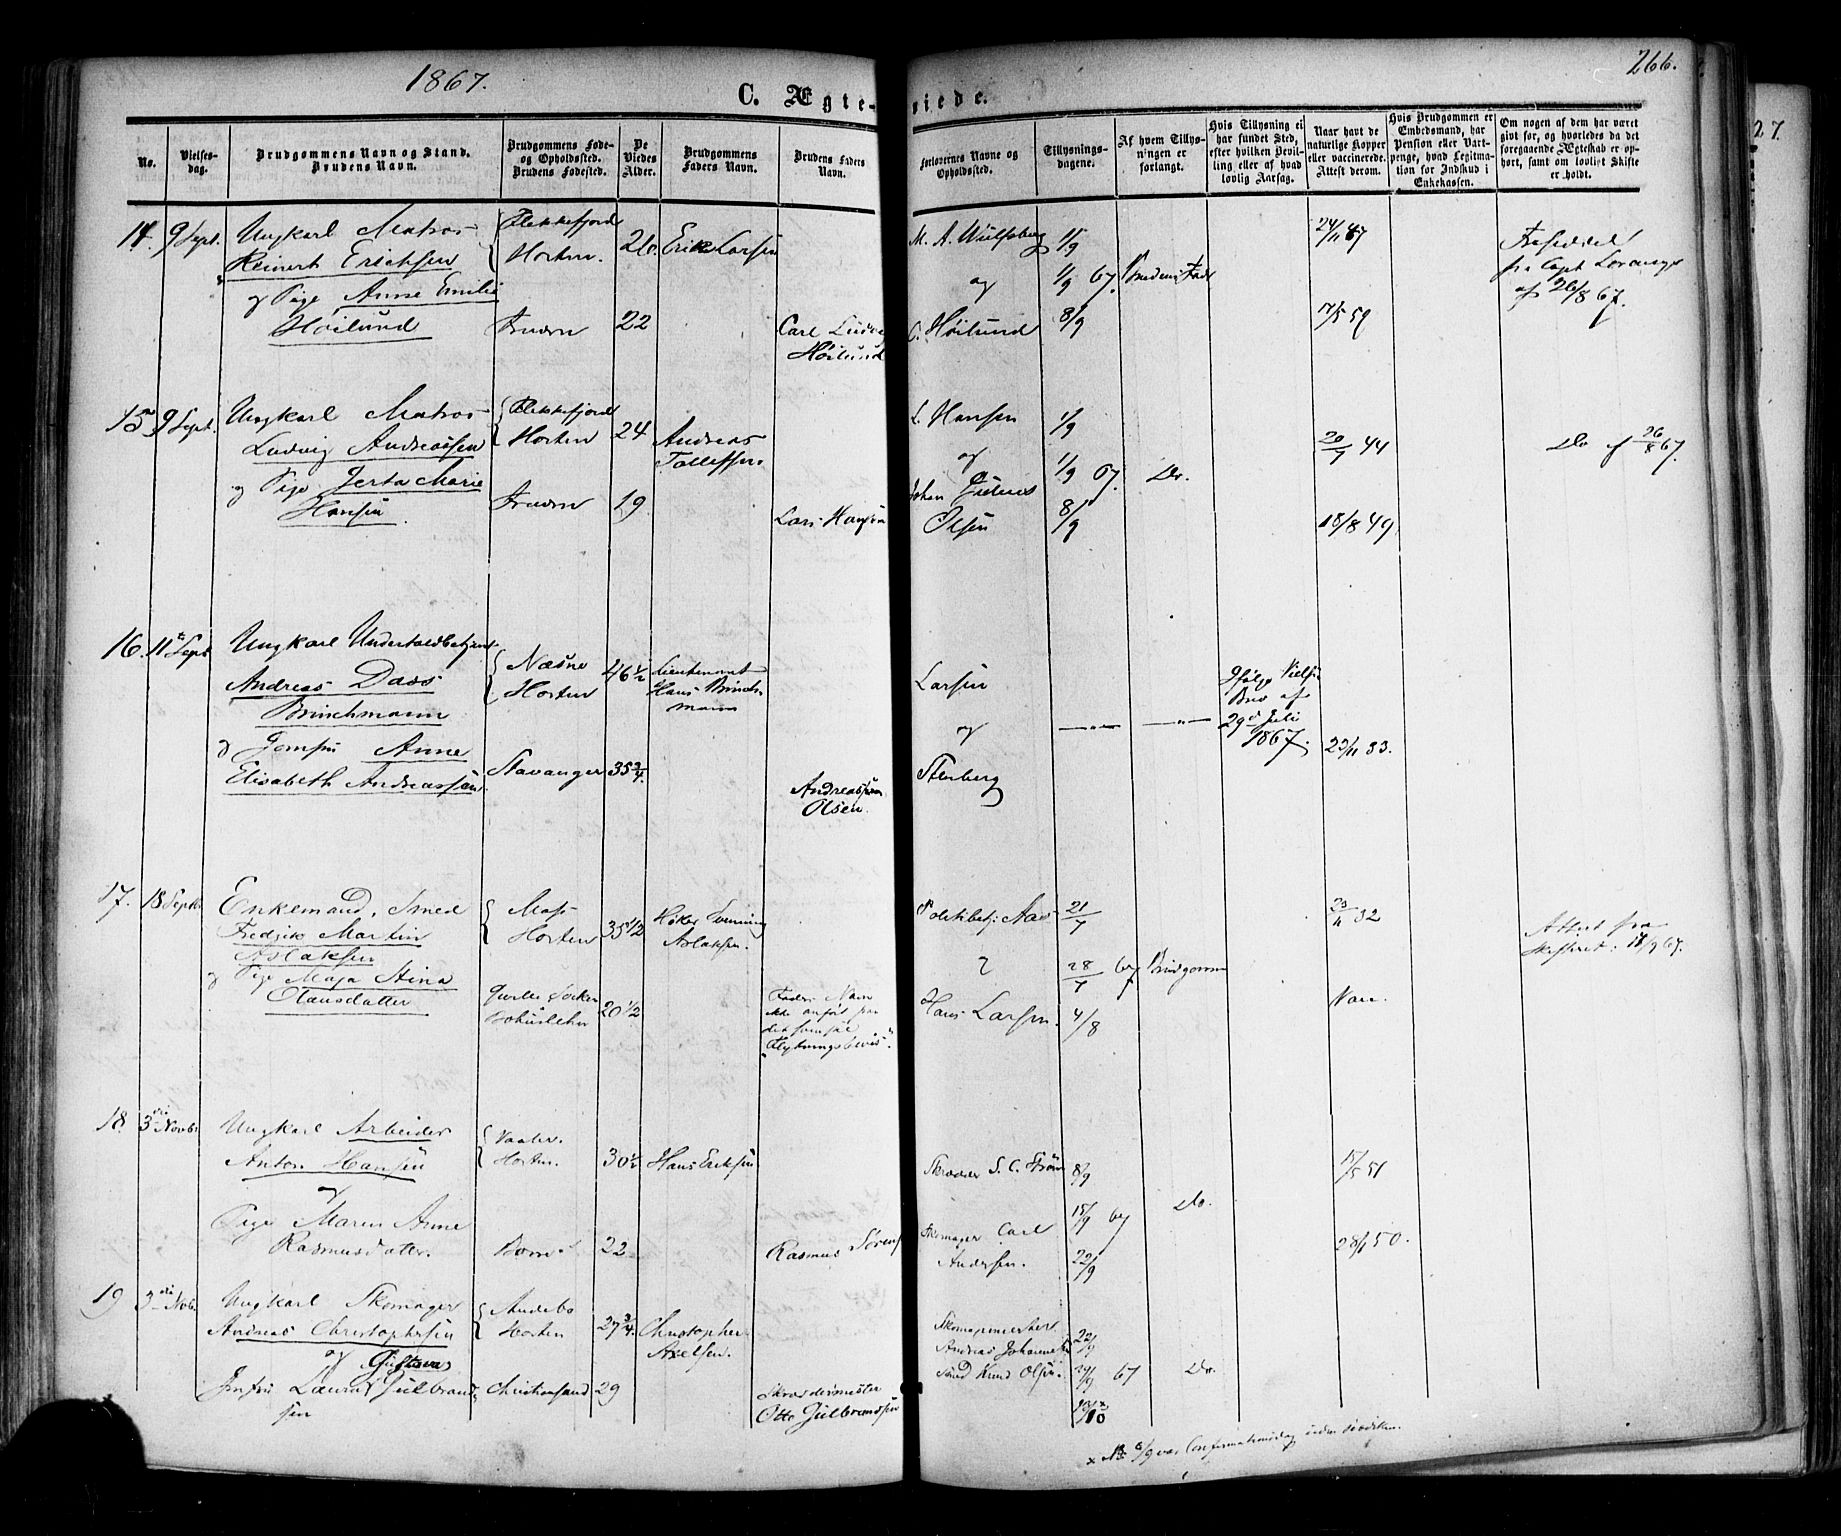 1867.
C. Ægte-
viede.
266.
No.
Vielses-
dag.
Brudgommens Navn og Stand.
Brudens Navn.
Brudgommens Føde-
og Opholdssted.
Brudens Fødested.
De
Viedes
Alder.
Brudgommens
Faders Navn.
Brudens Faders
Navn.
Forlovernes Navne og
Opholdssted.
Tillysnings-
dagene.
Af hvem Tillys-
ningen er
forlangt.
Hvis Tillysning ei
har fundet Sted,
efter hvilken Bevil-
ling eller af hvad
lovlig Aarsag.
Naar havt de
naturlige Kopper
eller vaccinerede.
Attest derom.
Hvis Brudgommen er
Embedsmand, har
Pension eller Vart-
penge, hvad Legitima-
tion for Indskud i
Enkekassen.
Om nogen af dem har været
gift før, og hvorledes da det
foregaaende Ægteskab er op-
hørt, samt om lovligt Skifte
er holdt.
14. 9 Sept. Ungkarl Matros
Reinert Ericksen
og Pige Anne Emilie
Høilund
Flekkefjord
Horten.
Trudvn
26.
22
Erik Larsen
Carl
Høilund
M. A. Wulfsberg
og
C. Høilund
1/9
1/9 67.
8/9
Brudens Fader
24/11 47
17/5 59
Frasedel
fra Capt
af 26/8 67.
15 9 Sept. Ungkarl Matros
Ludvig Andreassen
og Pige Jerta Marie
Hansen
Flekkefjord
Horten
24
19
Andreas
Tollefsen
Lars Hansen
L. Hansen
og
Johan
Olsen
1/9
1/9 67.
8/9
Do.
20/7 44
18/8 49
Do af 26/8 67.
16. 11te Sept Ungkarl Undertoldbetjent
Andreas Dass
Brinchmann
og Jomfru Anne
Elisabeth Andreassen
Næsne
Horten
Stavanger
46 1/2
35 3/4
Lieutenant
Hans Brinch-
mann
Andreassen
Olsen.
Larsen
og
Stenberg
— „ —
— „ —
Ifølge
Brev af
29d Juli
1867.
23/11 33.
17. 18 Septbr Enkemand, Smed
Fredrik Martin
Aslaksen
og Pige Maja Stina
Olausdatter
Moss
Horten
Bohuslehn
35 1/2
20 1/2
Høker Svenning
Aslaksen.
Faders Navn
ikke anført paa
det
"Flytningsbevis".
Politibetj. Aas
Hans Larsen.
21/7
28/7 67
4/8
Brudgommen
23/11 32
Nov.
Attest fra
Skifteret: 18/9 67.
18. 3die Novbr Ungkarl Arbeider
Anton Hansen
og
Pige Maren Anne
Rasmusdatter.
Vaaler.
Horten.
Borre
30 1/2
22
Hans Eriksen
Rasmus Sørens
Skrædder S. C. Strøm
Skomager Carl
Andersen.
8/9
15/9 67
22/9
Do.
15/5 51
28/1 50.
19 3die Nov. Ungkarl Skomager
Andreas Christophersen
og Gustava
Jomfru Laura Gulbrand-
sen
Andebo
Horten
Christiansand
27 3/4
29
Christopher
Axelsen.
Skræddermester
Otto Gulbrandsen
Skomagermester
Andreas Johannesen
Knud Olsen.
22/9
29/9 67
13/10 x
Do.
x NB 6/9 var Confirmationsdag